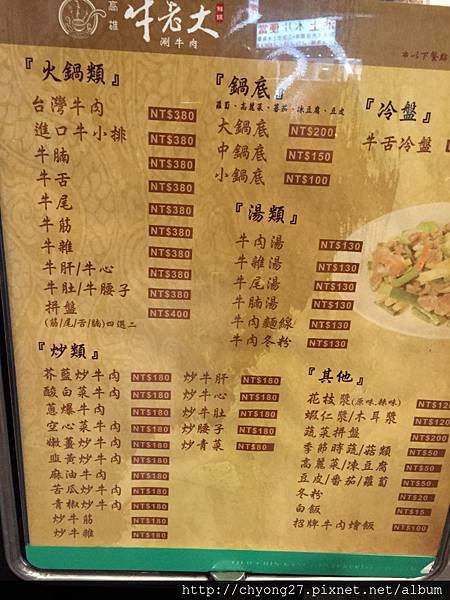 高雄
牛老大
涮牛肉
『火鍋類』
台灣牛肉 NT$380
進口牛小排 NT$380
牛腩 NT$380
牛舌 NT$380
牛尾 NT$380
牛筋 NT$380
牛雜 NT$380
牛肝/牛心 NT$380
牛肚/牛腰子 NT$380
拼盤 NT$400
(筋/尾/舌/腩)四選二
『鍋底』
蘿蔔、高麗菜、蕃茄、凍豆腐、豆皮
大鍋底 NT$200
中鍋底 NT$150
小鍋底 NT$100
『湯類』
牛肉湯 NT$130
牛雜湯 NT$130
牛尾湯 NT$130
牛腩湯 NT$130
牛肉麵線 NT$130
牛肉冬粉 NT$130
『冷盤』
牛舌冷盤
『炒類』
芥藍炒牛肉 NT$180
酸白菜牛肉 NT$180
蔥爆牛肉 NT$180
空心菜牛肉 NT$180
嫩薑炒牛肉 NT$180
韭黃炒牛肉 NT$180
麻油牛肉 NT$180
苦瓜炒牛肉 NT$180
青椒炒牛肉 NT$180
炒牛筋 NT$180
炒牛雜 NT$180
炒牛肝 NT$180
炒牛心 NT$180
炒牛肚 NT$180
炒腰子 NT$180
炒青菜 NT$80
『其他』
花枝漿(原味.辣味) NT$120
蝦仁漿/木耳漿 NT$120
蔬菜拼盤 NT$200
季節時蔬/菇類 NT$50
高麗菜/凍豆腐 NT$50
豆皮/蕃茄/蘿蔔 NT$50
冬粉 NT$20
白飯 NT$15
招牌牛肉燴飯 NT$100
http://chyong27.pixnet.net/album